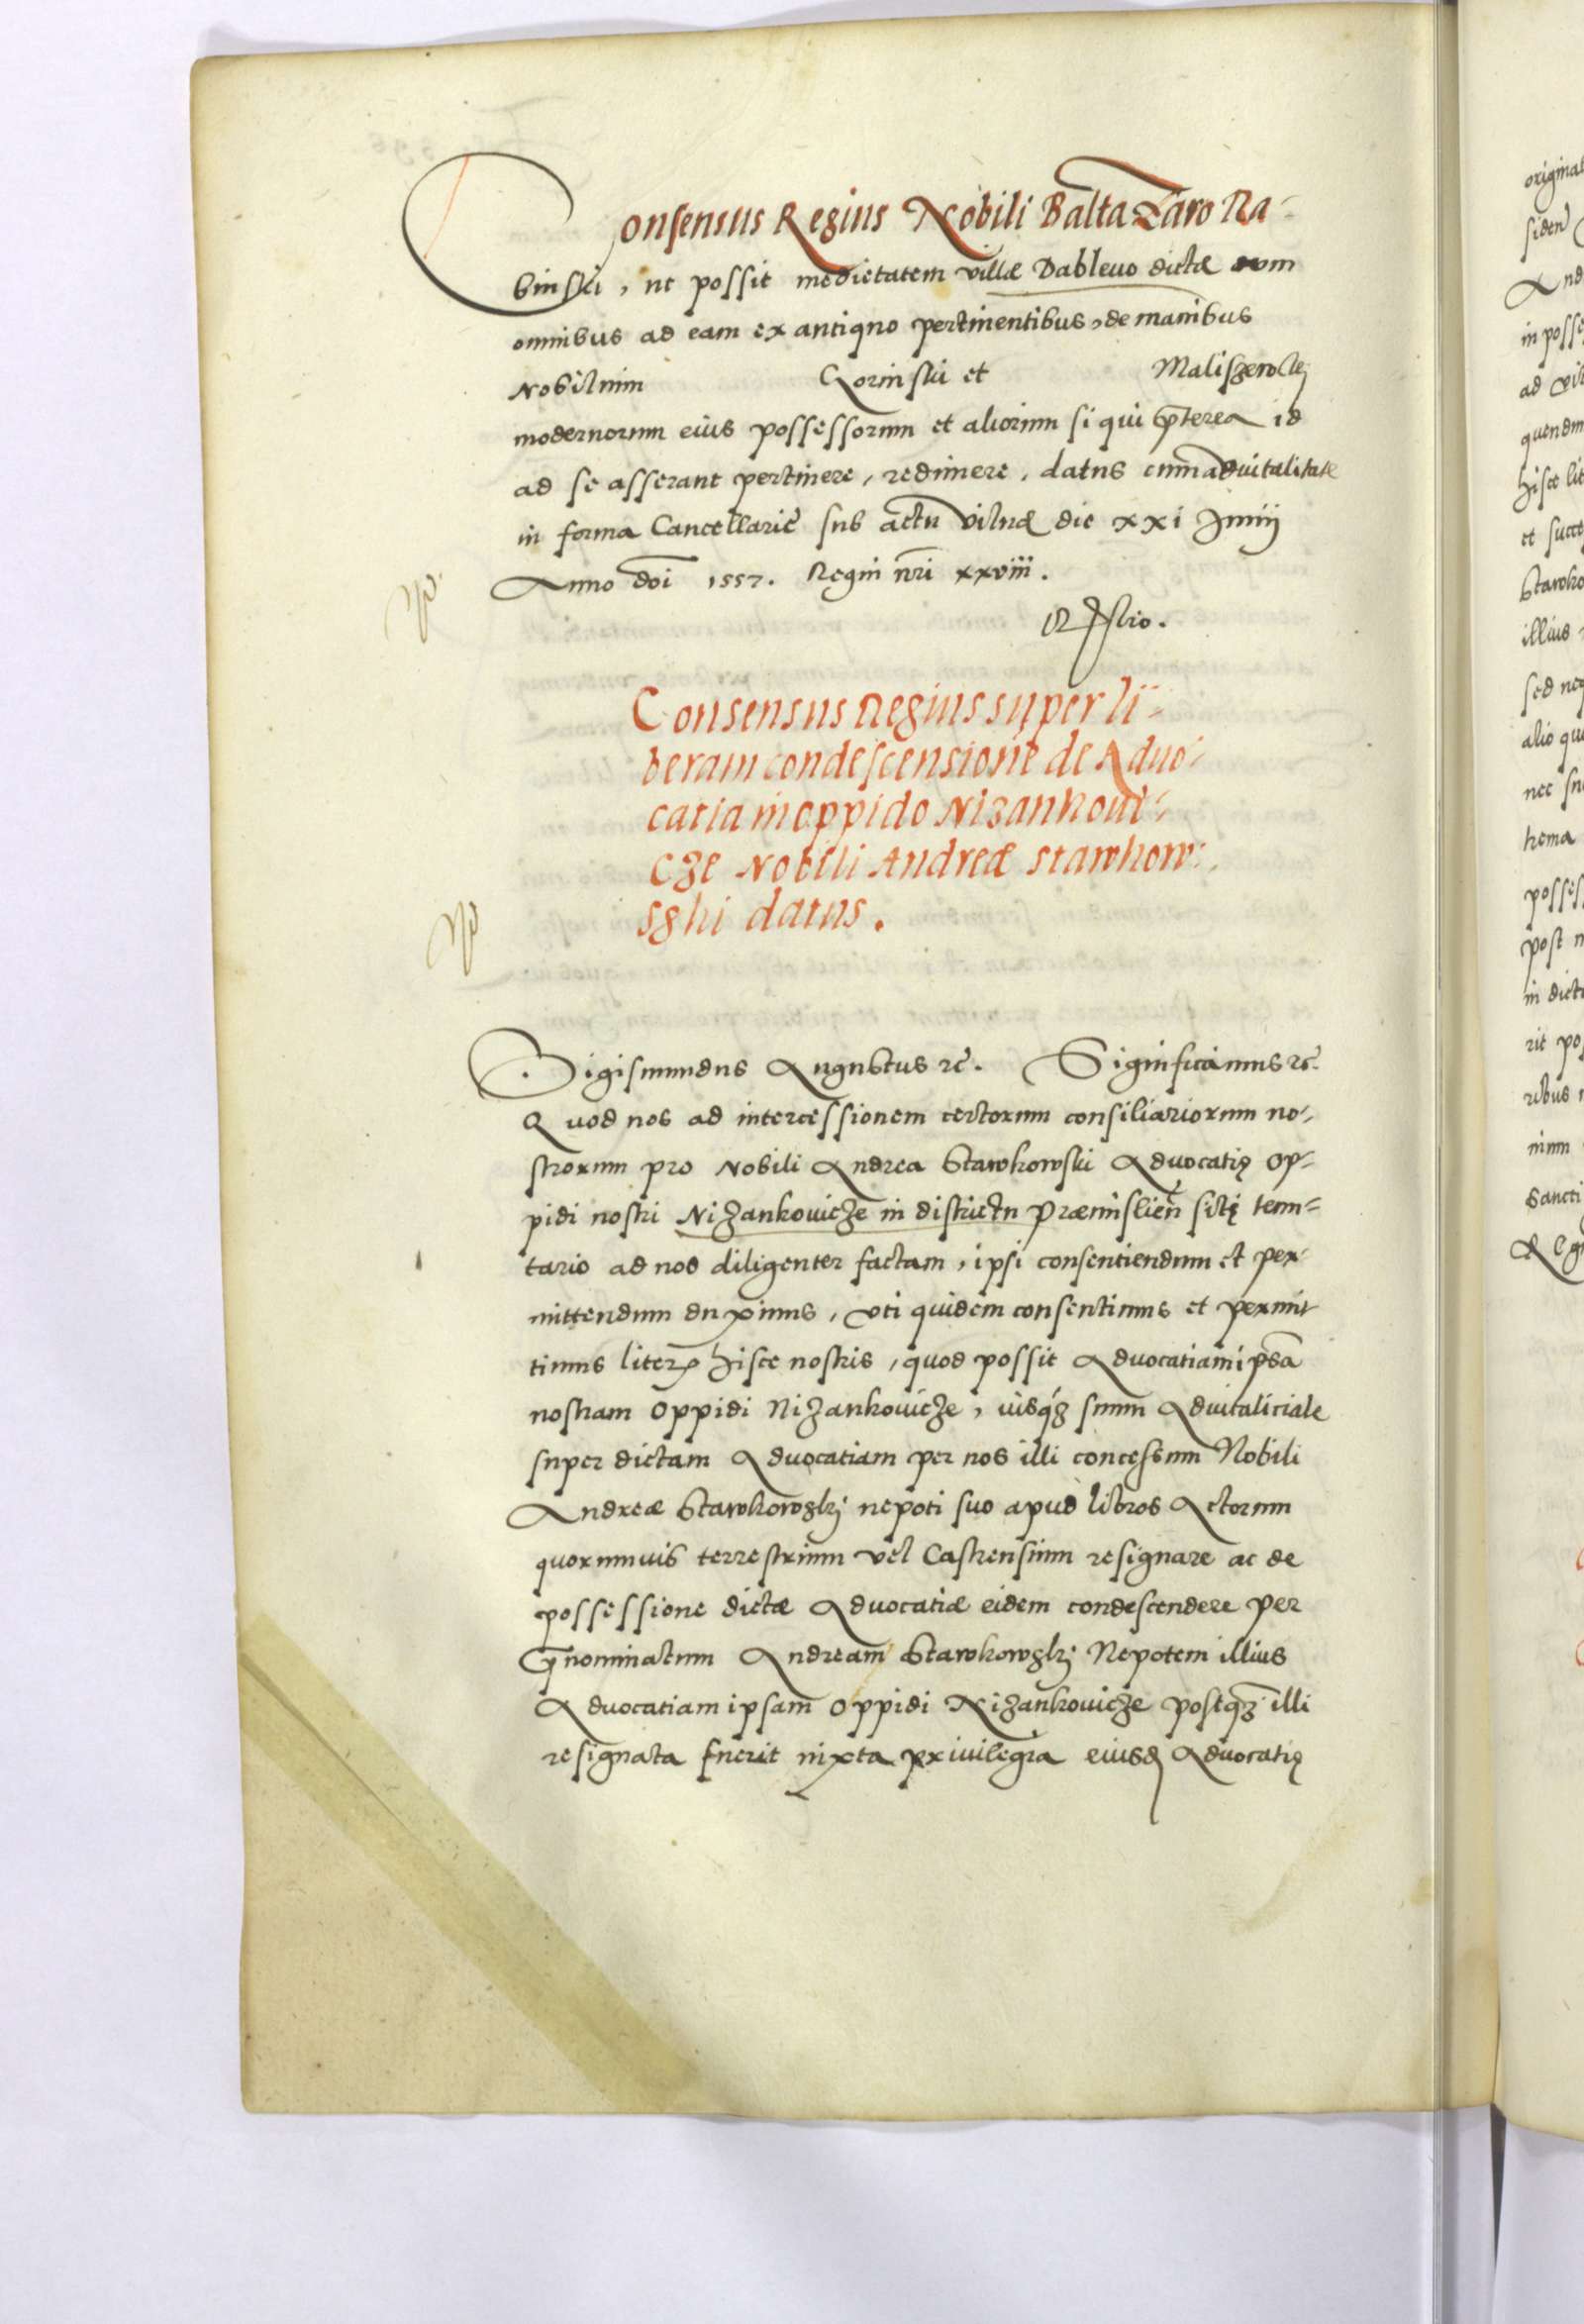 Consensus Regius Nobili Baltazaro Ra-
binski, ut possit medietatem villæ Dableuo dictæ cum
omnibus ad eam ex antiquo pertinentibus, de manibus
Nobilium Gorinski et Maliszewskj
modernorum eius possessorum et aliorum si qui p̄terea id
ad se asserant pertinere, redimere, datus cum aduitalitate
in forma Cancellariẹ sub actu Vilnæ die xxi Junij
Anno doi 1557. Regni nri xxviii.
Consensus Regius super li-
beram condescensionē de Aduo-
catia in oppido Nizankoui-
cze Nobili Andreæ Starkow-
sghi datus.
Sigismundus Augustus rc̄. Significamus rc̄.
Quod nos ad intercessionem certorum consiliariorum no-
strorum pro Nobili Andrea Starkowski Aduocatię op-
pidi nostri Nizankouicze in districtu Præmislien̄ sitę tenu-
tario ad nos diligenter factam, ipsi consentiendum et per-
mittendum duximus, vti quidem consentimus et permit
timus literꝭ hisce nostris, quod possit Aduocatiam ipsā
nostram oppidi Nizankouicze, iusqꝫ suum Aduitaliciale
super dictam Aduocatiam per nos illi concessum Nobili
Andreæ Starkowskj nepoti suo apud libros Actorum
quorumuis terrestrium vel Castrensium resignare ac de
possessione dictæ Aduocatiæ eidem condescendere per
p̄nominatum Andream Starkowskj Nepotem illius
Aduocatiam ipsam oppidi Nizankouicze postqꝫ illi
resignata fuerit iuxta priuilegia eiusd Aduocatię